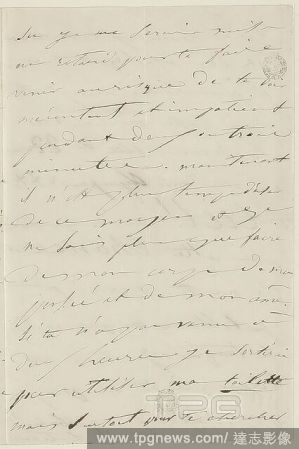 su je me serais mise
en retard pour te faire
venir au risque de te voir
mécontent et impatient
pendant deux ou trois
minutes. maintenant
il n'est plus temps
de ce moyen et je
ne sais plus que faire
de mon corps de ma
pensée et de mon âme.
Si tu n'es pas venu à
heures je sortirai
pour utiliser ma toilette
mais surtout pour te chercher
TPG
www.tpgnews.com/達志影像